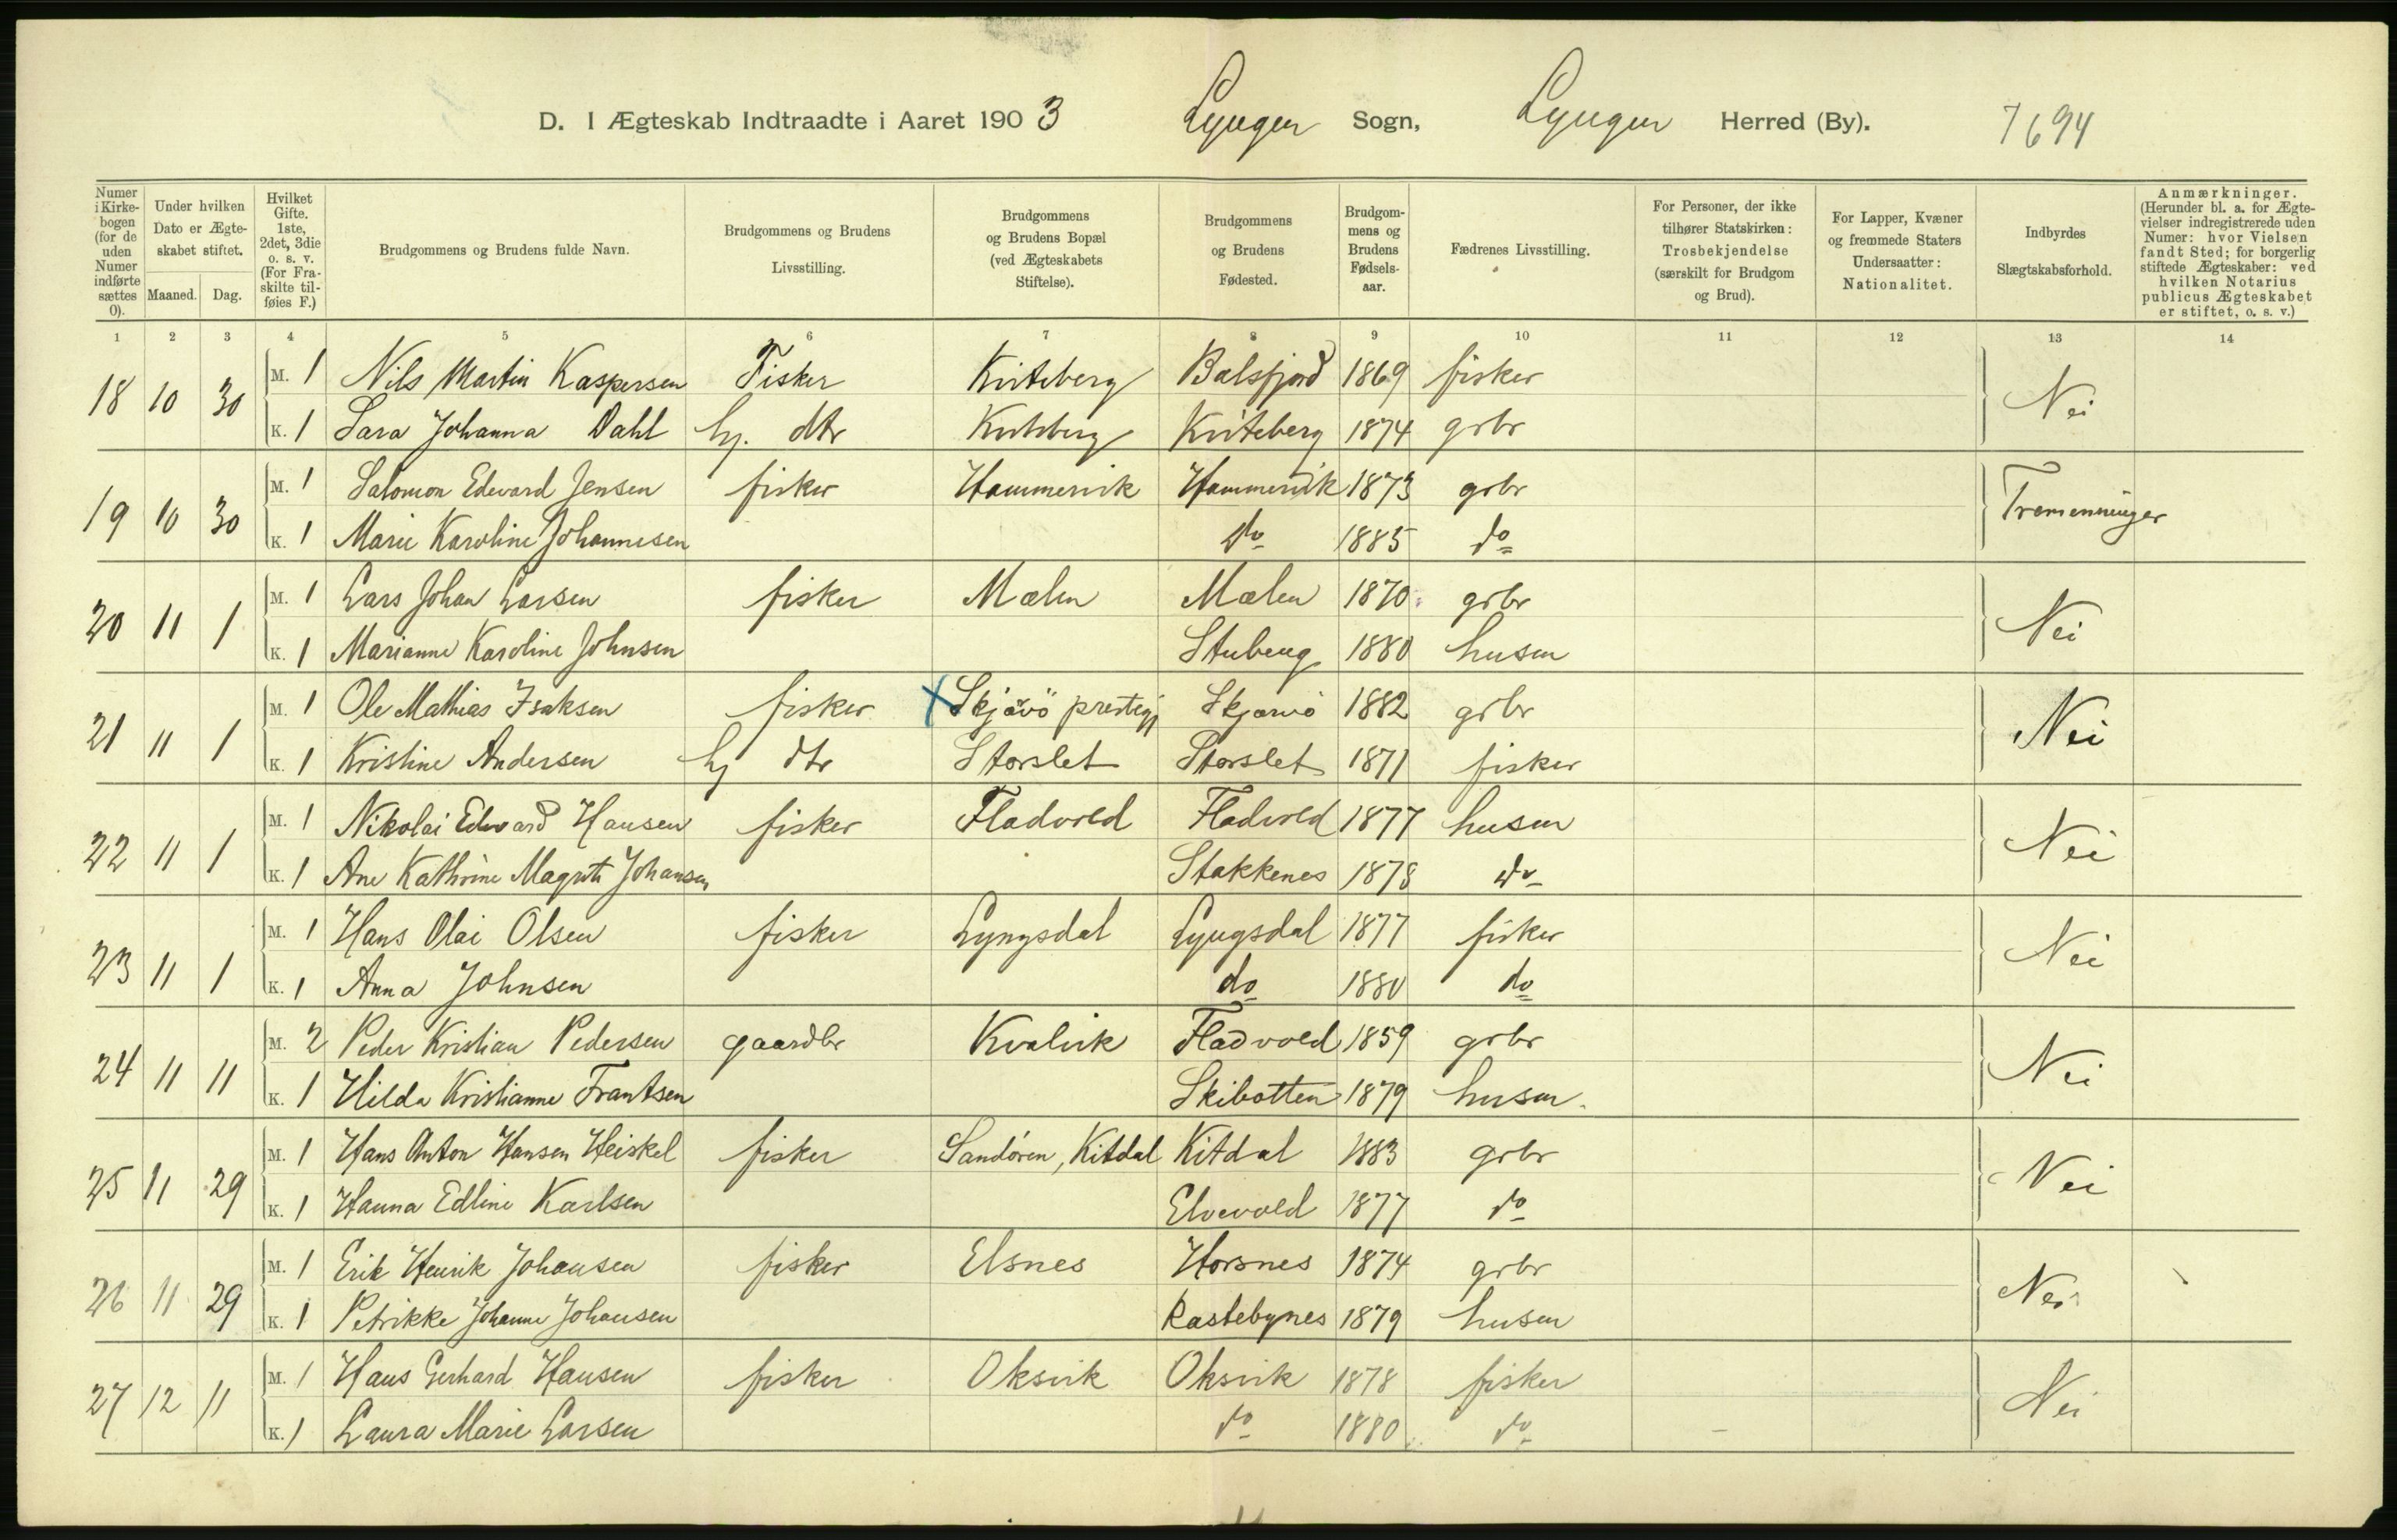 D. I Ægteskab Indtraadte i Aaret 1903 Lyngen Sogn, Lyngen Herred (By). 7694
Numer i Kirkebogen (for de uden Numer indførte sættes 0). Under hvilken Dato er Ægteskabet stiftet. Maaned. Dag. Hvilket Gifte. 1ste, 2det, 3die o. s. v. (For Fraskilte tilføies F.) Brudgommens og Brudens fulde Navn. Brudgommens og Brudens Livsstilling. Brudgommens og Brudens Bopæl (ved Ægteskabets Stiftelse). Brudgommens og Brudens Fødested. Brudgommens og Brudens Fødselsaar. Fædrenes Livsstilling. For Personer, der ikke tilhører Statskirken: Trosbekjendelse (særskilt for Brudgom og Brud). For Lapper, Kvæner og fremmede Staters Undersaatter: Nationalitet. Indbyrdes Slægtskabsforhold. Anmærkninger. (Herunder bl. a. for Ægtevielser indregistrerede uden Numer: hvor Vielsen fandt Sted; for borgerlig stiftede Ægteskaber: ved hvilken Notarius publicus Ægteskabet er stiftet, o. s. v.)
1 2 3 4 5 6 7 8 9 10 11 12 13 14
18 10 30 M. 1 Nils Martin Kaspersen Fisker Kviteberg Balsfjord 1869 fisker Nei
K. 1 Sara Johanna Dahl hj. dtr Kviteberg Kviteberg 1874 grbr
19 10 30 M. 1 Salomon Edevard Jensen fisker Hammervik Hammervik 1873 grbr Tremenninger
K. 1 Marie Karoline Johannesen do 1885 do
20 11 1 M. 1 Lars Johan Larsen fisker Mælen Mælen 1870 grbr Nei
K. 1 Marianne Karoline Johnsen Stubeng 1880 husm
21 11 1 M. 1 Ole Mathias Isaksen fisker X Skjævö prestegj Skjærvö 1882 grbr Nei
K. 1 Kristine Andersen hj dtr Storslet Storslet 1871 fisker
22 11 1 M. 1 Nikolai Edvard Hansen fisker Fladvold Fladvold 1877 husm Nei
K. 1 Ane Kathrine Magrete Johansen Stakkenes 1878 do
23 11 1 M. 1 Hans Olai Olsen fisker Lyngsdal Lyngsdal 1877 fisker Nei
K. 1 Anna Johnsen do 1880 do
24 11 11 M. 2 Peder Kristian Pedersen gaardbr Kvalvik Fladvold 1859 grbr Nei
K. 1 Hilda Kristianne Frantsen Skibotten 1879 husm.
25 11 29 M. 1 Hans Anton Hansen Heiskel fisker Sandören, Kitdal Kitdal 1883 grbr Nei
K. 1 Hanna Edline Karlsen Elvevold 1877 do
26 11 29 M. 1 Erik Henrik Johansen fisker Elsnes Horsnes 1874 grbr Nei
K. 1 Petrikke Johanne Johansen Rastebynes 1879 husm
27 12 11 M. 1 Hans Gerhard Hansen fisker Oksvik Oksvik 1878 fisker Nei
K. 1 Laura Marie Larsen do 1880 do